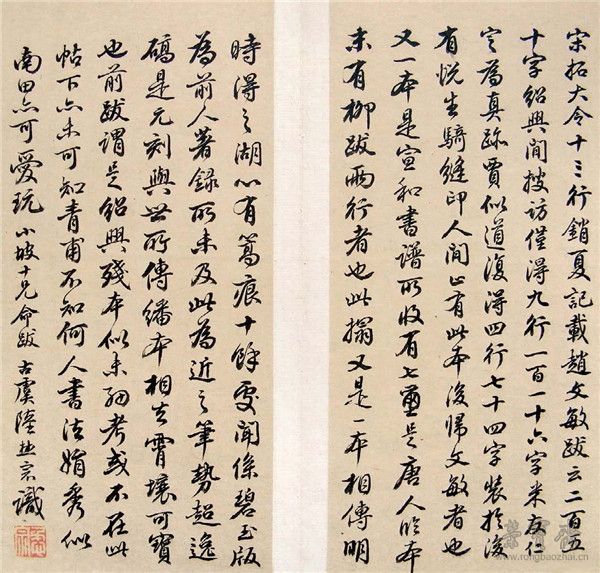 宋拓大令十三行銷夏記載趙文敏跋云二百五
十字紹興間搜訪僅得九行一百七十六字米友仁
定為真跡賈似道復得四行七十四字裝於後
有悅生騎縫印人間止有此本後歸文敏者也
又一本是宣和書譜所收有七璽是唐人臨本
末有柳跋兩行者也此搨又是一本相傳明
時得之湖心有篙痕十餘處聞係碧玉版
為前人著錄所未及此為近之筆勢超逸
礄是元刻與世所傳繙本相去霄壤可寶
也前跋謂是紹興殘本似未細考或不在此
帖下亦未可知青甫不知何人書法娟秀似
南田亦可愛玩小坡十兄命跋古虞陸恢識
榮寶齋
www.rongbaozhai.cn